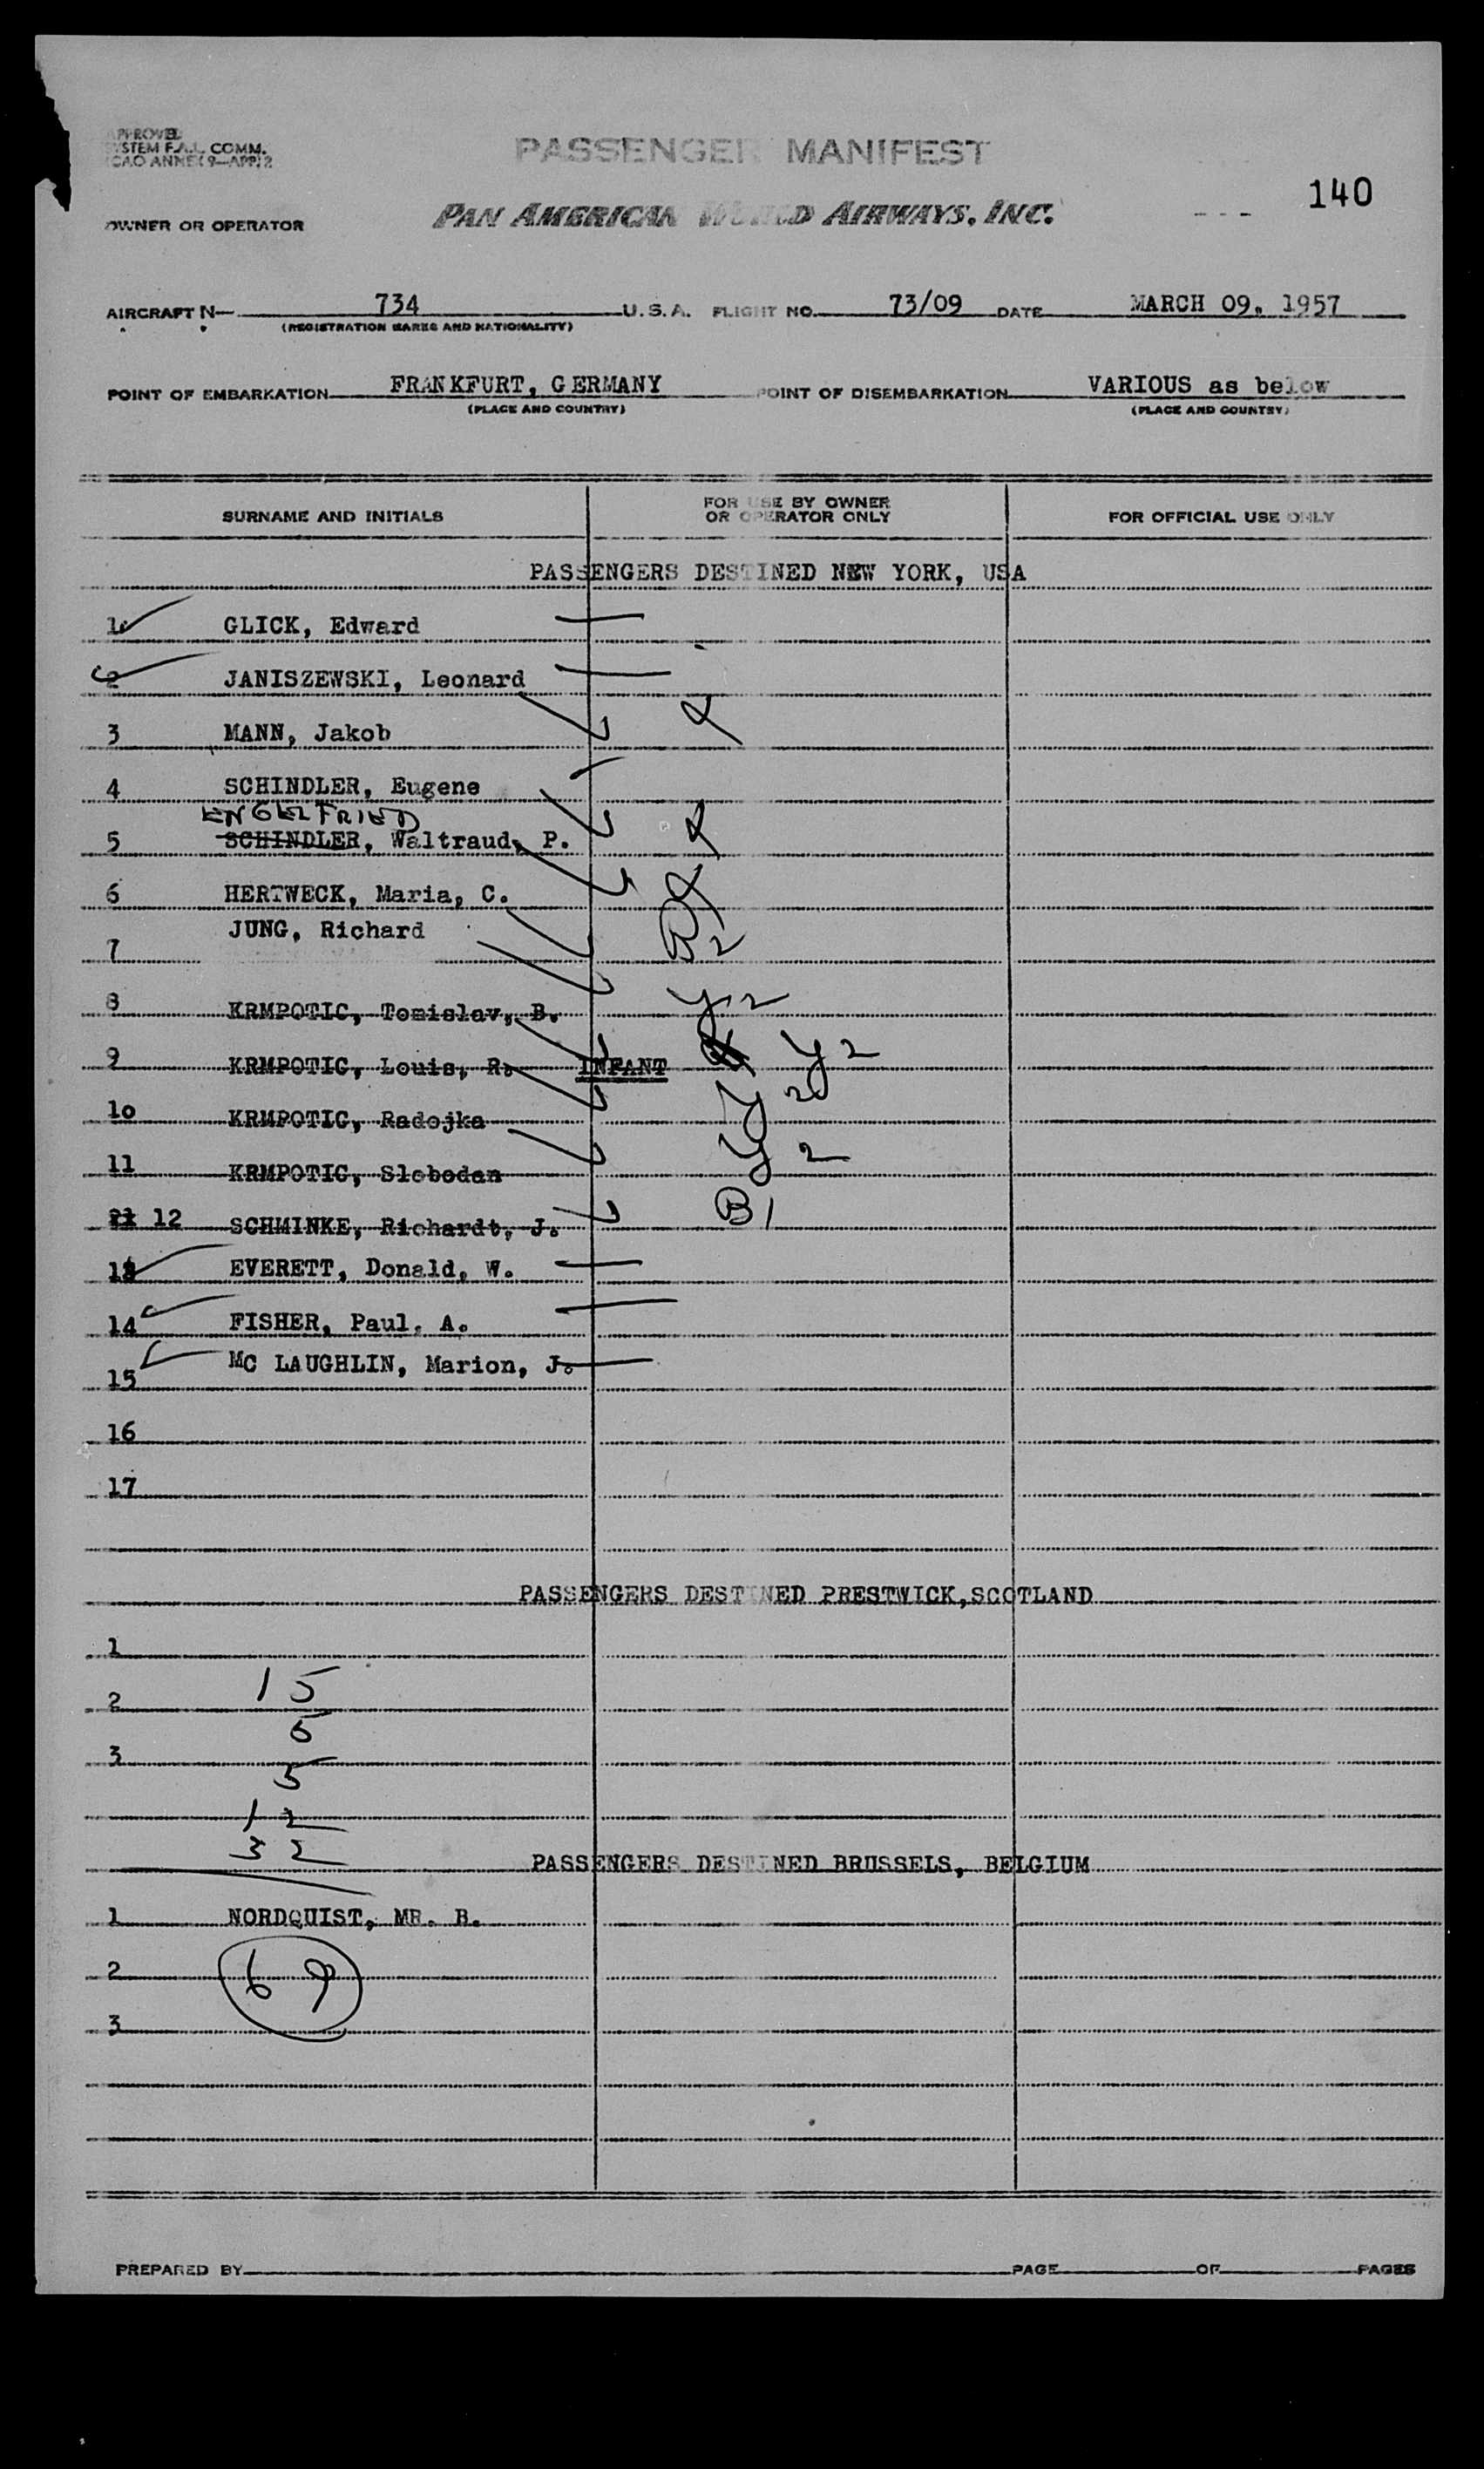 APPROVED
SYSTEM F.A.L. COMM.
ICAO ANNEX 9—APP. 2
PASSENGER MANIFEST
140
OWNER OR OPERATOR
PAN AMERICAN WORLD AIRWAYS, INC.
- - -
AIRCRAFT N— 734 U.S.A. FLIGHT NO. 73/09 DATE MARCH 09, 1957
(REGISTRATION MARKS AND NATIONALITY)
POINT OF EMBARKATION FRANKFURT, GERMANY POINT OF DISEMBARKATION VARIOUS as below
(PLACE AND COUNTRY) (PLACE AND COUNTRY)
SURNAME AND INITIALS FOR USE BY OWNER OR OPERATOR ONLY FOR OFFICIAL USE ONLY
PASSENGERS DESTINED NEW YORK, USA
1 GLICK, Edward
2 JANISZEWSKI, Leonard
3 MANN, Jakob
4 SCHINDLER, Eugene
ENGELFRIED
5 SCHINDLER, Waltraud, P.
6 HERTWECK, Maria, C.
7 JUNG, Richard B2
8 KRMPOTIC, Tomislav, B. Y2
9 KRMPOTIC, Louis, R. INFANT Y2
10 KRMPOTIC, Radojka Y2
11 KRMPOTIC, Slobodan Y2
21 12 SCHMINKE, Richardt, J. B1
13 EVERETT, Donald, W.
14 FISHER, Paul, A.
15 MC LAUGHLIN, Marion, J.
16
17
PASSENGERS DESTINED PRESTWICK,SCOTLAND
1
15
2
5
3
5
12
32
PASSENGERS DESTINED BRUSSELS, BELGIUM
1 NORDQUIST, MR. B.
2 69
3
PREPARED BY PAGE OF PAGES